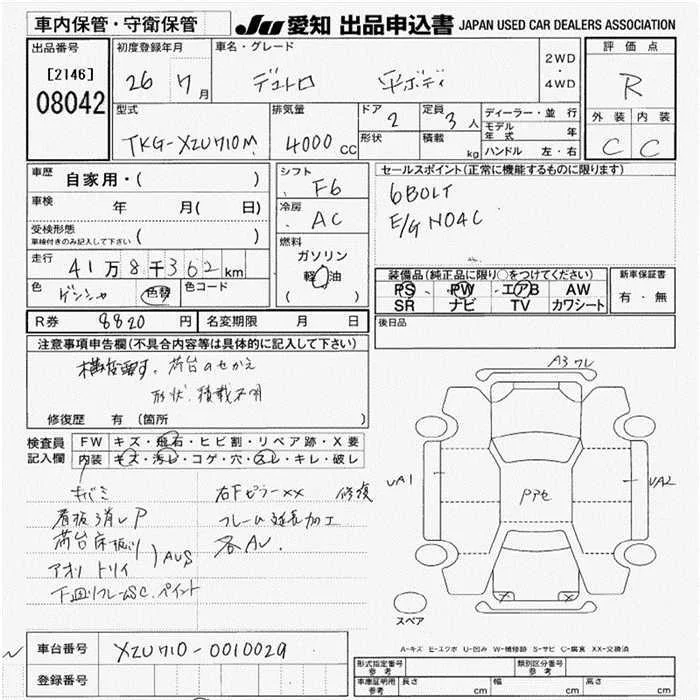 車内保管・守衛保管
JU 愛知 出品申込書 JAPAN USED CAR DEALERS ASSOCIATION
出品番号
[2146]
08042
初度登録年月
26 7月
車名・グレード
デュトロ 平ボディ
2WD
・
4WD
評価点
R
外装 内装
C C
型式
TKG-XZU710M
排気量
4000 CC
ドア
2
定員
3人
形状
積載
kg
ディーラー・並行
モデル年式 年
ハンドル 左・右
車歴 自家用・( )
車検 年 月( 日)
受検形態
車検付きのみ記入して下さい ( )
走行 41万8千362km
色 ゲンシャ 色替 色コード
シフト
F6
冷房
AC
燃料
ガソリン
軽油
( )
セールスポイント(正常に機能するものに限ります)
6BOLT
E/G N04C
装備品(純正品に限り○をつけてください)
PS PW エアB AW
SR ナビ TV カワシート
新車保証書
有・無
R券 8820円 名変期限 月 日
後日品
注意事項申告欄(不具合内容等は具体的に記入して下さい)
荷台のせかえ
形状、積載不明
修復歴 有(箇所 )
検査員記入欄
FW キズ・飛石・ヒビ割・リペア跡・X要
内装 キズ・汚レ・コゲ・穴・スレ・キレ・破レ
キバミ
看板消しP
荷台床板ハリ
アオリ トリイ ) AUS
下廻りフレームSC.ペイント
右Fピラーxx 修復
フレーム延長加工
各AU.
A3ワレ
UA1
UA2
PPC
X X
スペア
A-キズ E-エクボ U-凹み W-補修跡 S-サビ C-腐食 XX-交換済
車台番号 XZU710-0010029
登録番号
形式指定番号 参考
類別区分番号 参考
車庫証明用 参考 長さ cm 幅 cm 高さ cm